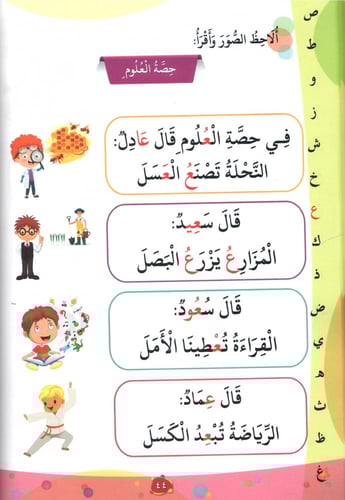 أُلَاحِظُ الصُّوَرَ وَأَقْرَأُ:
حِصَّةُ الْعُلُومِ
فِي حِصَّةِ الْعُلُومِ قَالَ عَادِلٌ:
النَّحْلَةُ تَصْنَعُ الْعَسَلَ
قَالَ سَعِيدٌ:
الْمُزَارِعُ يَزْرَعُ الْبَصَلَ
قَالَ سُعُودٌ:
الْقِرَاءَةُ تُعْطِينَا الْأَمَلَ
قَالَ عِمَادٌ:
الرِّيَاضَةُ تُبْعِدُ الْكَسَلَ
ص
ط
و
ز
ش
خ
ع
ك
ذ
ض
ي
هـ
ث
ظ
غ
٤٤